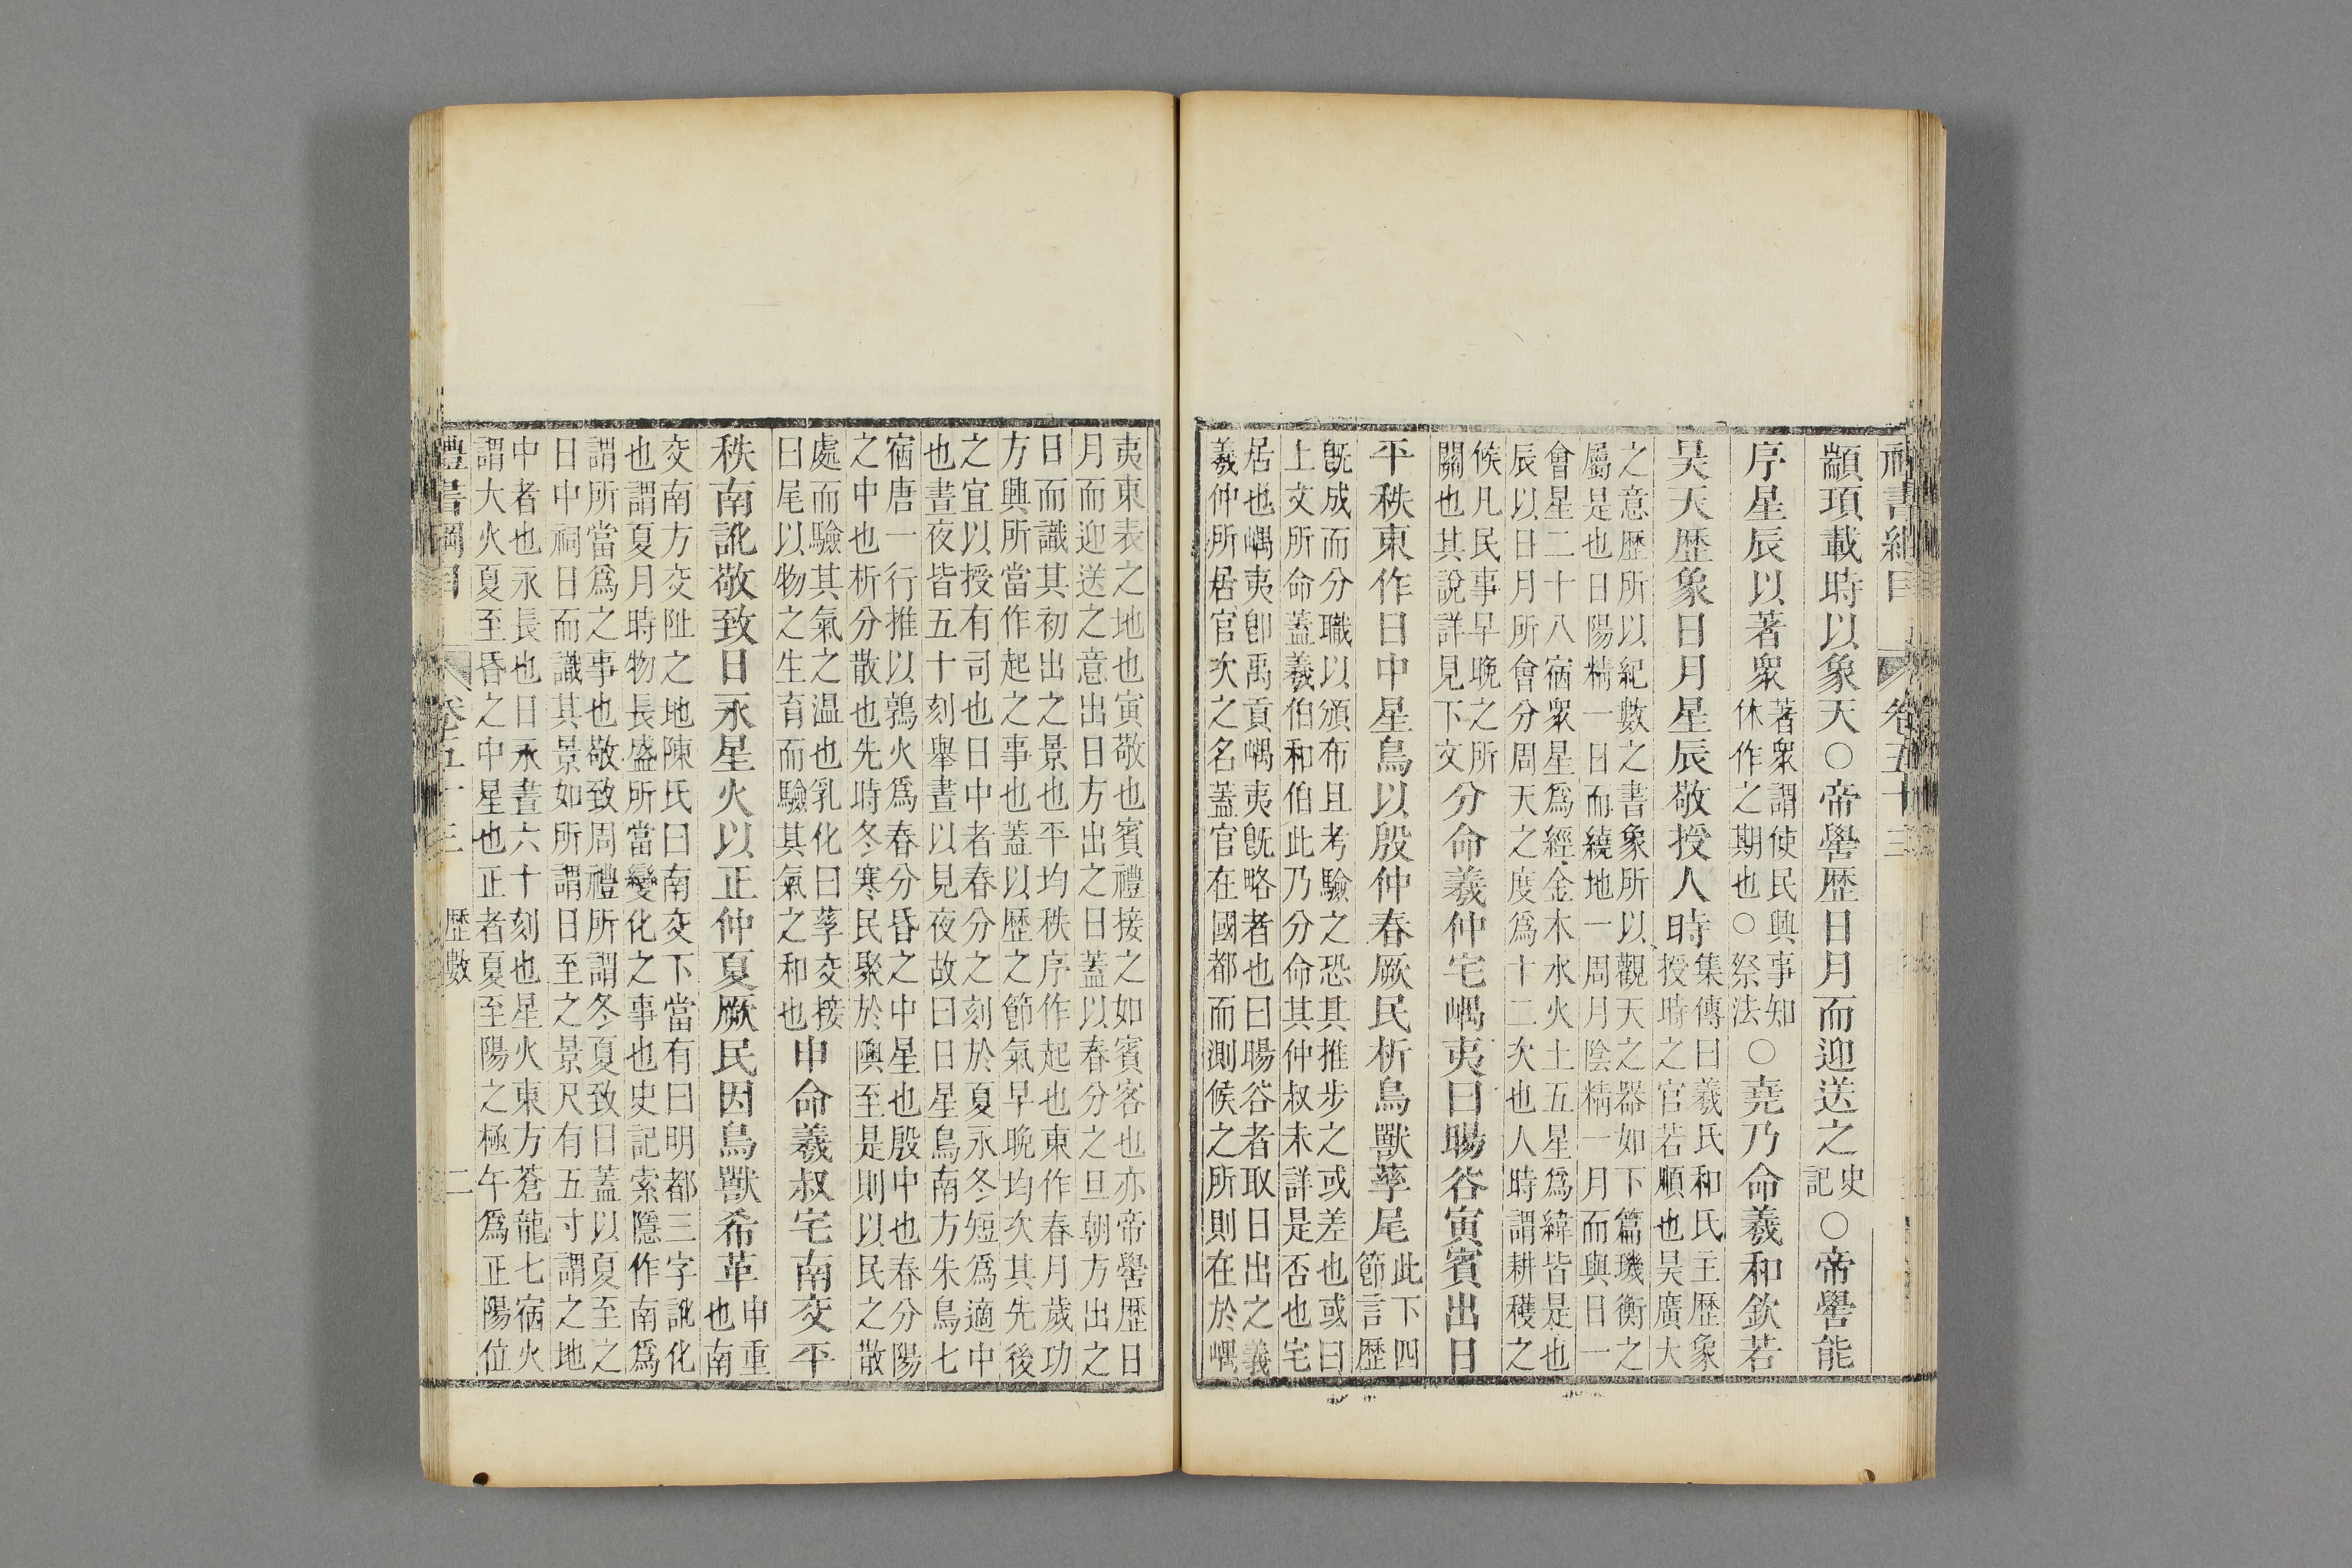 禮書綱目　卷五十三
顓項載時以象天○帝嚳歷日月而迎送之史記○帝嚳能
序星辰以著衆著衆謂使民興事知休作之期也○祭法○堯乃命羲和欽若
昊天歷象日月星辰敬授人時集傳曰羲氏和氏主歷象授時之官若順也昊廣大
之意歷所以紀數之書象所以觀天之器如下篇璣衡之
屬是也日陽精一日而繞地一周月陰精一月而與日一
會星二十八宿衆星爲經金木水火土五星爲緯皆是也
辰以日月所會分周天之度爲十二次也人時謂耕穫之
候凡民事早晚之所關也其說詳見下文分命羲仲宅嵎夷曰暘谷寅賓出日
平秩東作日中星鳥以殷仲春厥民析鳥獸孳尾此下四節言歷
旣成而分職以頒布且考驗之恐其推步之或差也或曰
上文所命蓋羲伯和伯此乃分命其仲叔未詳是否也宅
居也嵎夷卽禹貢嵎夷旣略者也曰暘谷者取日出之義
羲仲所居官次之名蓋官在國都而測候之所則在於嵎
夷東表之地也寅敬也賓禮接之如賓客也亦帝嚳歷日
月而迎送之意出日方出之日蓋以春分之旦朝方出之
日而識其初出之景也平均秩序作起也東作春月歲功
方興所當作起之事也蓋以歷之節氣早晚均次其先後
之宜以授有司也日中者春分之刻於夏永冬短爲適中
也晝夜皆五十刻舉晝以見夜故曰日星鳥南方朱鳥七
宿唐一行推以鶉火爲春分昏之中星也殷中也春分陽
之中也析分散也先時冬寒民聚於隩至是則以民之散
處而驗其氣之温也乳化曰孳交接
曰尾以物之生育而驗其氣之和也申命羲叔宅南交平
秩南訛敬致日永星火以正仲夏厥民因鳥獸希革申重也南
交南方交阯之地陳氏曰南交下當有曰明都三字訛化
也謂夏月時物長盛所當變化之事也史記索隱作南爲
謂所當爲之事也敬致周禮所謂冬夏致日蓋以夏至之
日中祠日而識其景如所謂日至之景尺有五寸謂之地
中者也永長也日永晝六十刻也星火東方蒼龍七宿火
謂大火夏至昏之中星也正者夏至陽之極午爲正陽位
禮書綱目　卷五十三　歷數　二